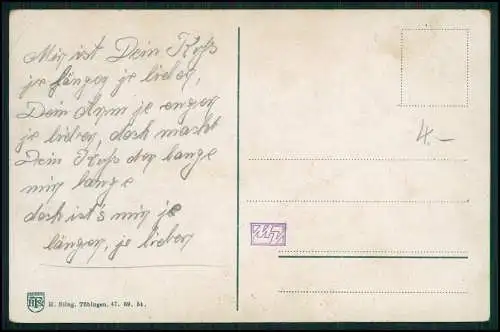 Mir ist Dein Kuß
je länger je lieber,
Dein Arm je enger
je lieber, doch macht
Dein Kuß der bange
mir lange
doch ist's mir je
länger, je lieber
4.-
MD
HSR
H. Sting, Tübingen. 47. 69. 54.